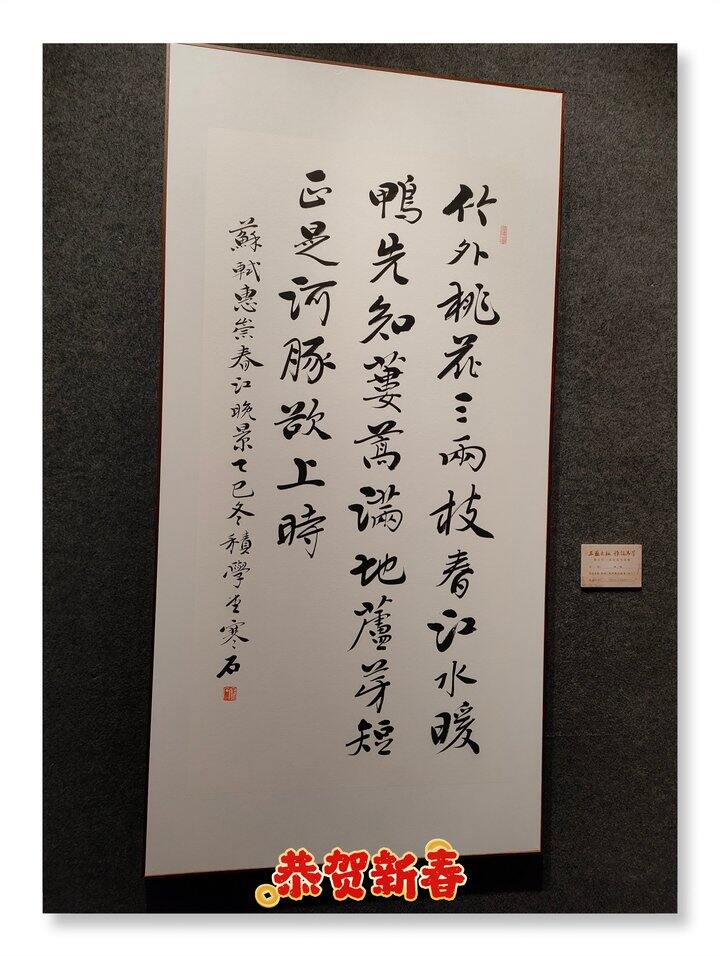 竹外桃花三兩枝春江水暖
鴨先知蔞蒿滿地蘆芽短
正是河豚欲上時
蘇軾惠崇春江晚景乙巳冬積學堂寒石
恭贺新春